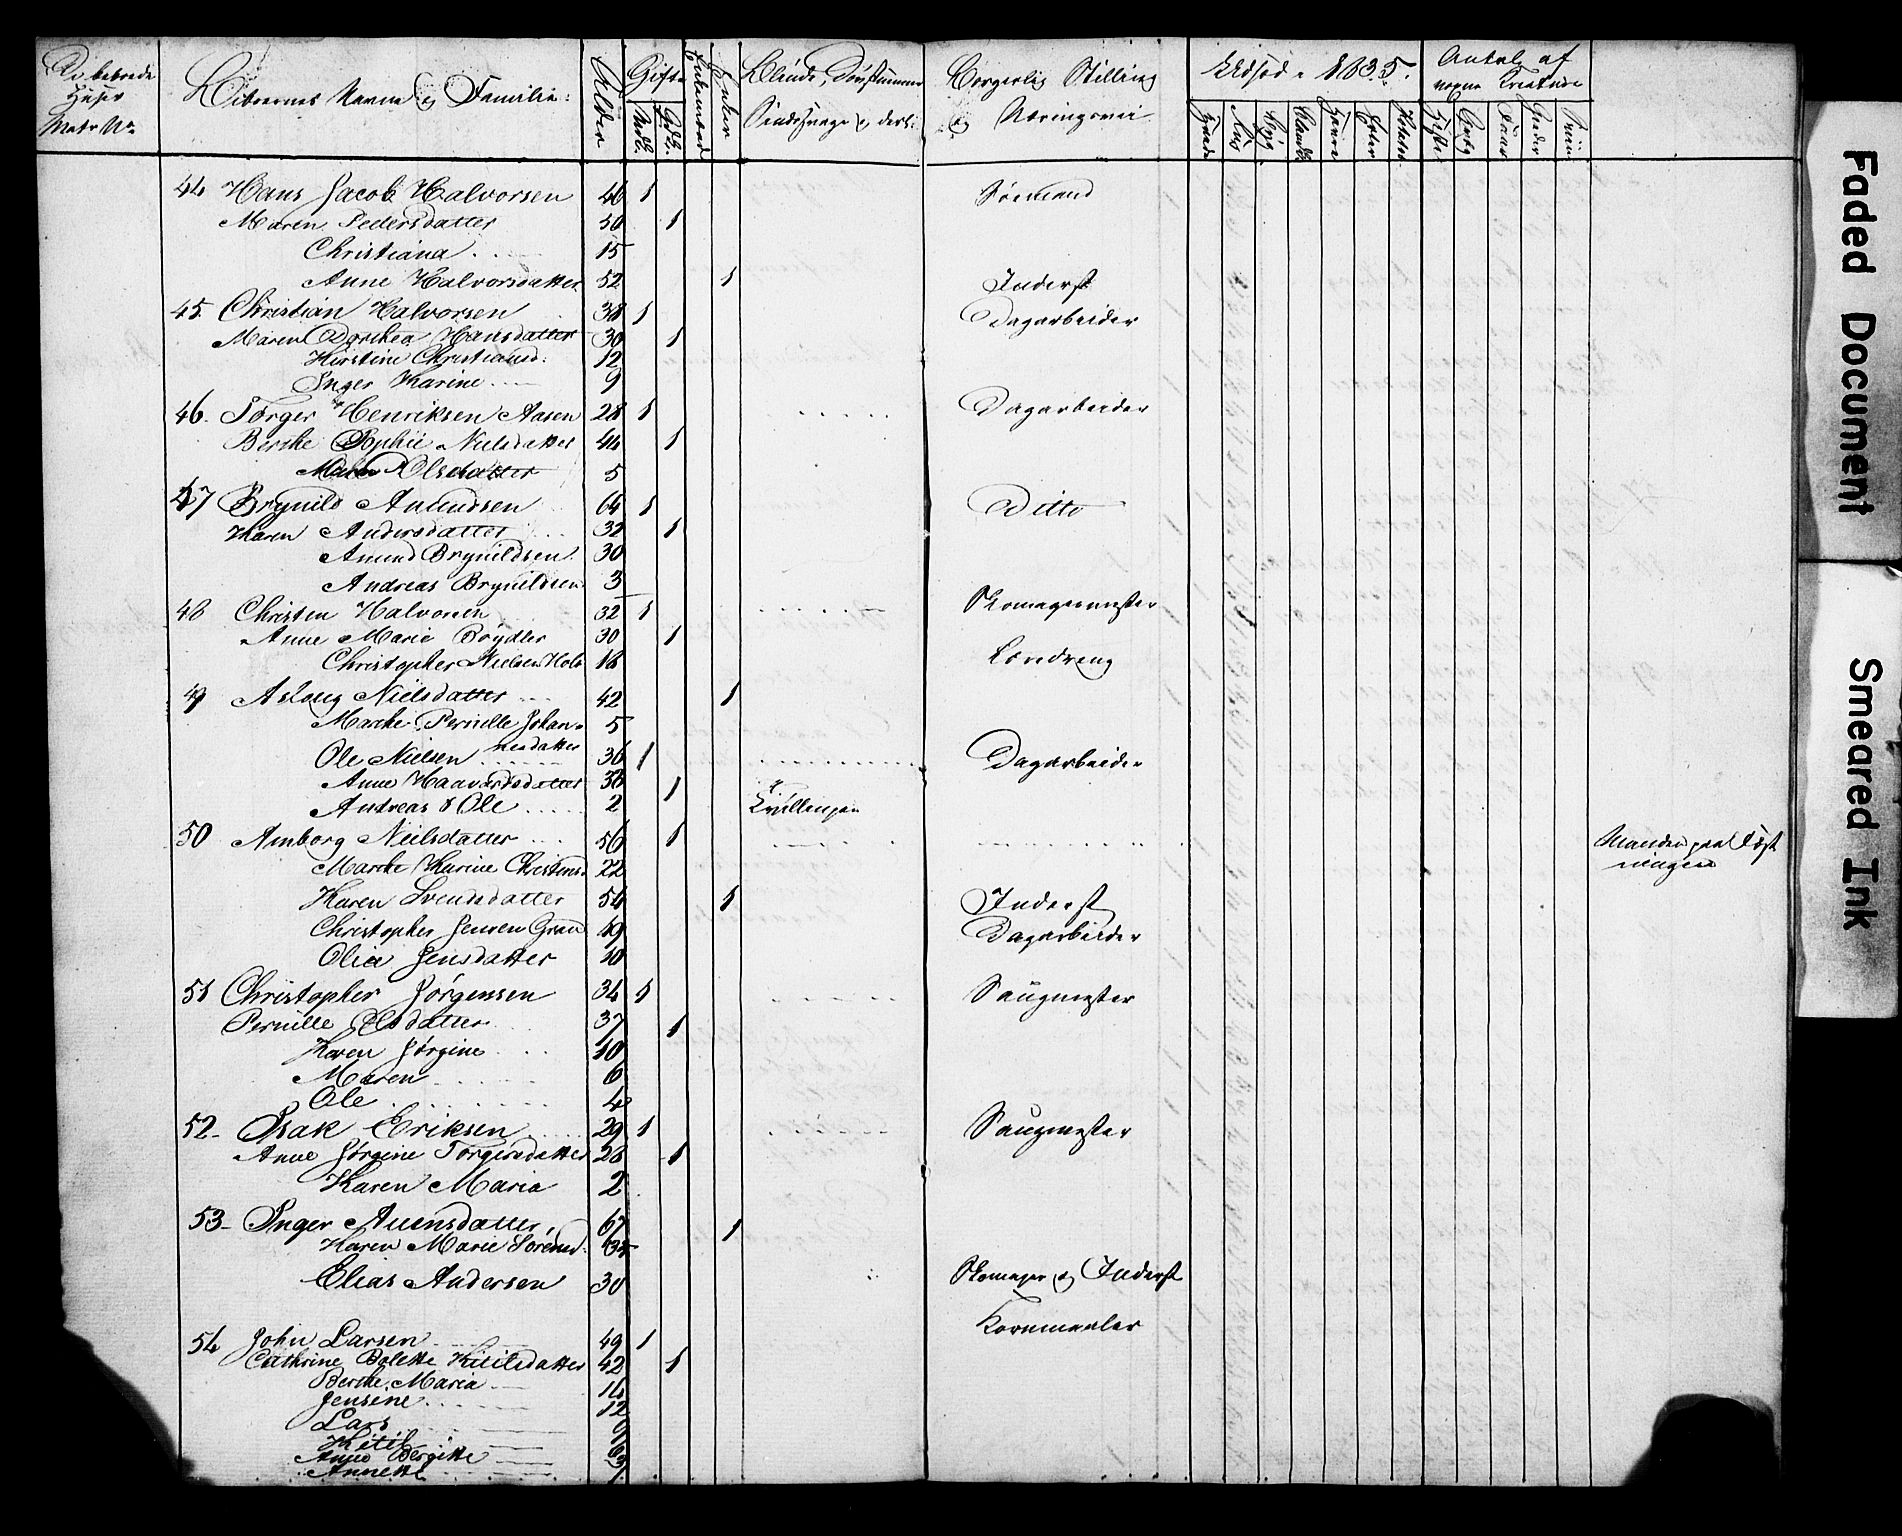 Huser
Matr No
Beboernes Navne og Familie
Alder
Gifte
Enker
Borgerlig Stilling
og Næringsvei
Udsæd 1835.
Antal af
44 Hans Jacob Halvorsen 46 1 Sømand
Maren Pedersdatter 50 1
Christiana 15
Anne Halvorsdatter 52 1 Inderst
45 Christian Halvorsen 38 1 Dagarbeider
Maren Dorthea Hansdatter 30 1
Kirstine Christiansd. 12
Inger Karine 9
46. Torger Henriksen Aasen 28 1 Dagarbeider
Berthe Sophie Nielsdatter 44 1
Maren Olsdatter 5
47 Brynild Amundsen 64 1 Ditto
Karen Andersdatter 32 1
Amund Brynildsen 30
Andreas Brynildsen 3
48 Christen Halvorsen 32 1 Skomagermester
Anne Marie Bøydler 30 1
Christopher Nielsen Holt 18 Læredreng
49 Aslaug Nielsdatter 42 1
Marthe Pernille Johan-
nesdatter 5
Ole Nielsen 36 1 Dagarbeider
Anne Haavardsdatter 38 1
Andreas & Ole 2 Tvillinger
50 Amborg Nielsdatter 56 1 Manden paa Fæst
ningen
Marthe Karine Christensd 22
Karen Svendsdatter 54 1 Inderst
Christopher Jensen Gran 49 Dagarbeider
Olea Jensdatter 10
51 Christopher Jørgensen 34 1 Saugmester
Pernille Olsdatter 37 1
Karen Jørgine 10
Maren 6
Ole 4
52 Isak Eriksen 29 1 Saugmester
Anne Jørgine Torgersdatter 28 1
Karen Maria 2
53 Inger Auensdatter 67 1
Karen Marie Sørensd.
Elias Andersen 30 Skomager og Inderst
54 John Larsen 49 1 Kornmaaler
Cathrine Bolette Kitilsdatter 42 1
Berthe Maria 14
Jensine 12
Lars 9
Kitil 6
Anne Bergitte 3
Annette 1
Faded Document
Smeared Ink